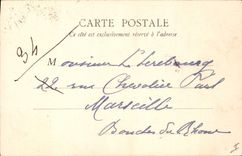 CARTE POSTALE
Ce côté est exclusivement réservé à l'adresse
34
Monsieur Lherebourg
22 rue Chevalier Paul
Marseille
Bouches du Rhône